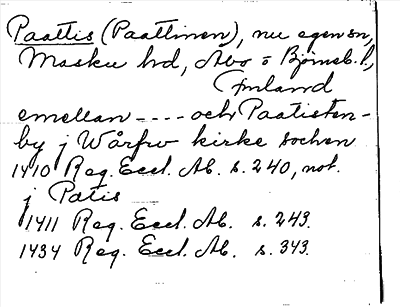 Paattis (Paattinen), nu egen sn,
Masku hd, Åbo o Björneb. l.,
Finland
emellan - - - - och Paatisten-
by j Wårfrv kirke sochen
1410 Reg. Eccl. Ab. s. 240, not.
j Patis
1411 Reg. Eccl. Ab. s. 243.
1434 Reg. Eccl. Ab. s. 343.